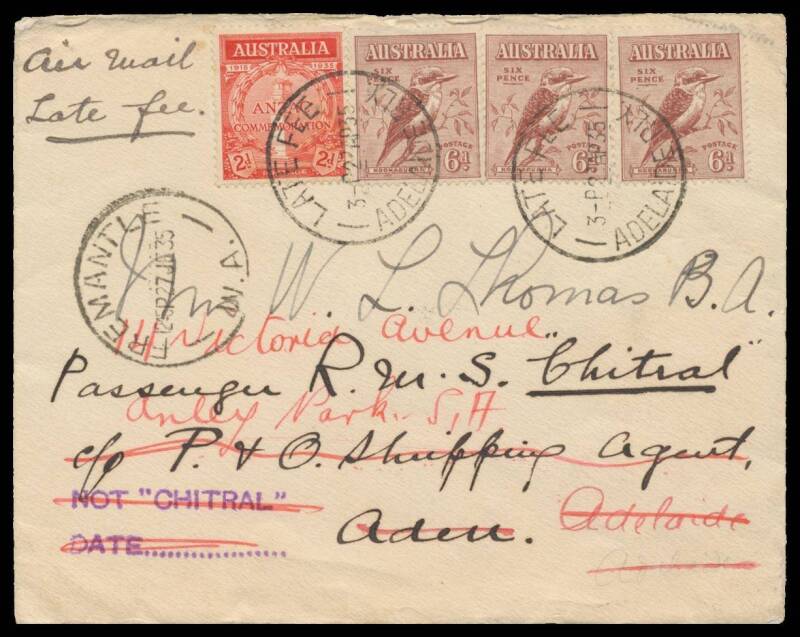 Air Mail
Late fee.
AUSTRALIA
1915 1935
ANZAC
COMMEMORATION
2d 2d
AUSTRALIA
SIX
PENCE
POSTAGE
6d
KOOKABURRA
AUSTRALIA
SIX
PENCE
POSTAGE
6d
AUSTRALIA
SIX
PENCE
POSTAGE
6d
KOOKABURRA
LATE FEE
ADELAIDE
LATE FEE
ADELAIDE
FREMANTLE
W.A.
W. L. Thomas B.A.
11 Victoria Avenue
Passenger R.M.S. "Chitral"
Unley Park. S.A
c/o P. & O. Shipping Agent,
NOT "CHITRAL"
Aden. Adelaide
DATE